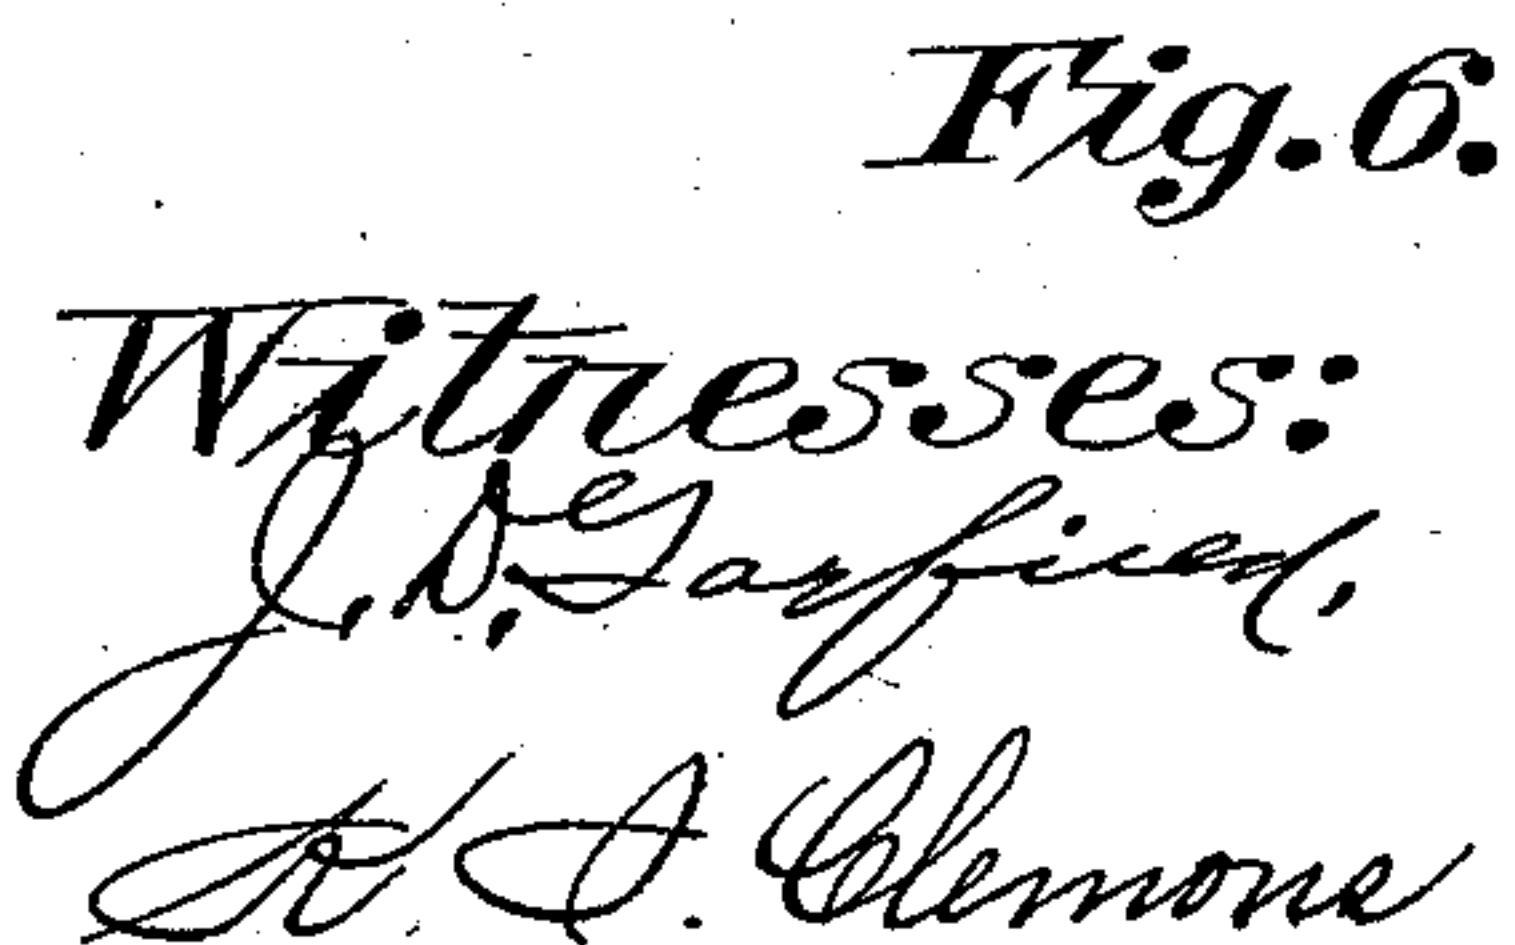 Fig. 6.
Witnesses:
J. D. Garfield.
K. I. Clemons